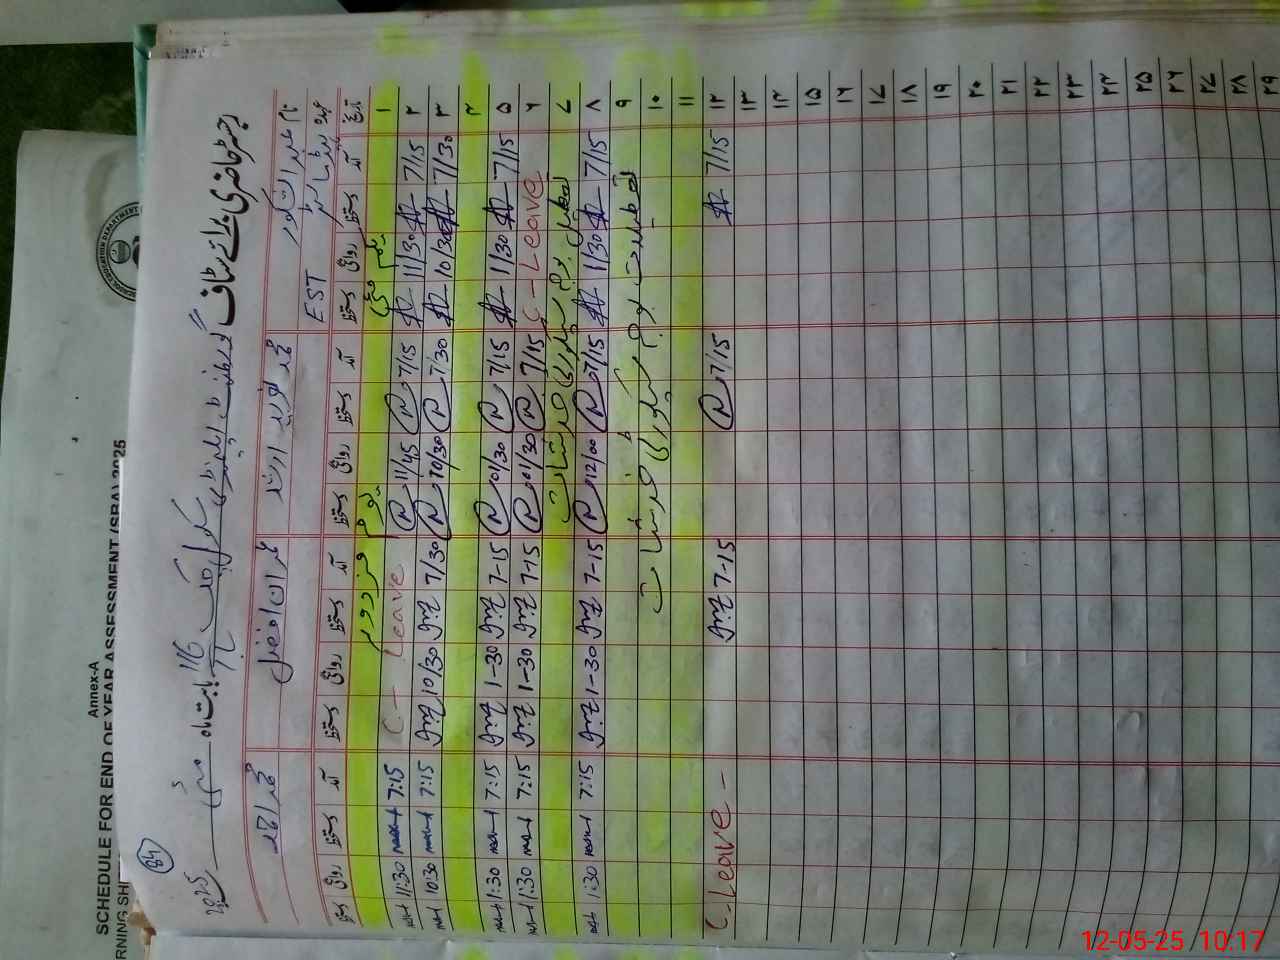 84
رجسٹر حاضری برائے سٹاف گورنمنٹ ایلیمنٹری سکول چک 116 بابت ماہ مئی 2025
نام عہدیداران
عہدہ EST محمد نوید ارشد عمران افضل محمد احمد
تاریخ آمد دستخط روانگی دستخط آمد دستخط روانگی دستخط آمد دستخط روانگی دستخط آمد دستخط روانگی دستخط
۱ یکم مئی یوم مزدور
۲ 7/15 11/30 7/15 11/45 C - Leave 7:15 11:30
۳ 7/30 10/30 7/30 10/30 7/30 10/30 7:15 10:30
۴
۵ 7/15 1/30 7/15 01/30 7-15 1-30 7:15 1:30
۶ C - Leave 7/15 01/30 7-15 1-30 7:15 1:30
۷ تعطیل بوجہ سکیورٹی خدشات
۸ 7/15 1/30 7/15 12/00 7-15 1-30 7:15 1:30
۹ تعطیلات بوجہ سکیورٹی خدشات
۱۰
۱۱
۱۲ 7/15 7/15 7-15 C-Leave -
۱۳
۱۴
۱۵
۱۶
۱۷
۱۸
۱۹
۲۰
۲۱
۲۲
۲۳
۲۴
۲۵
۲۶
۲۷
۲۸
۲۹
Annex-A
SCHEDULE FOR END OF YEAR ASSESSMENT (SBA) 2025
RNING SHI
SCHOOL EDUCATION DEPARTMENT
12-05-25 10:17